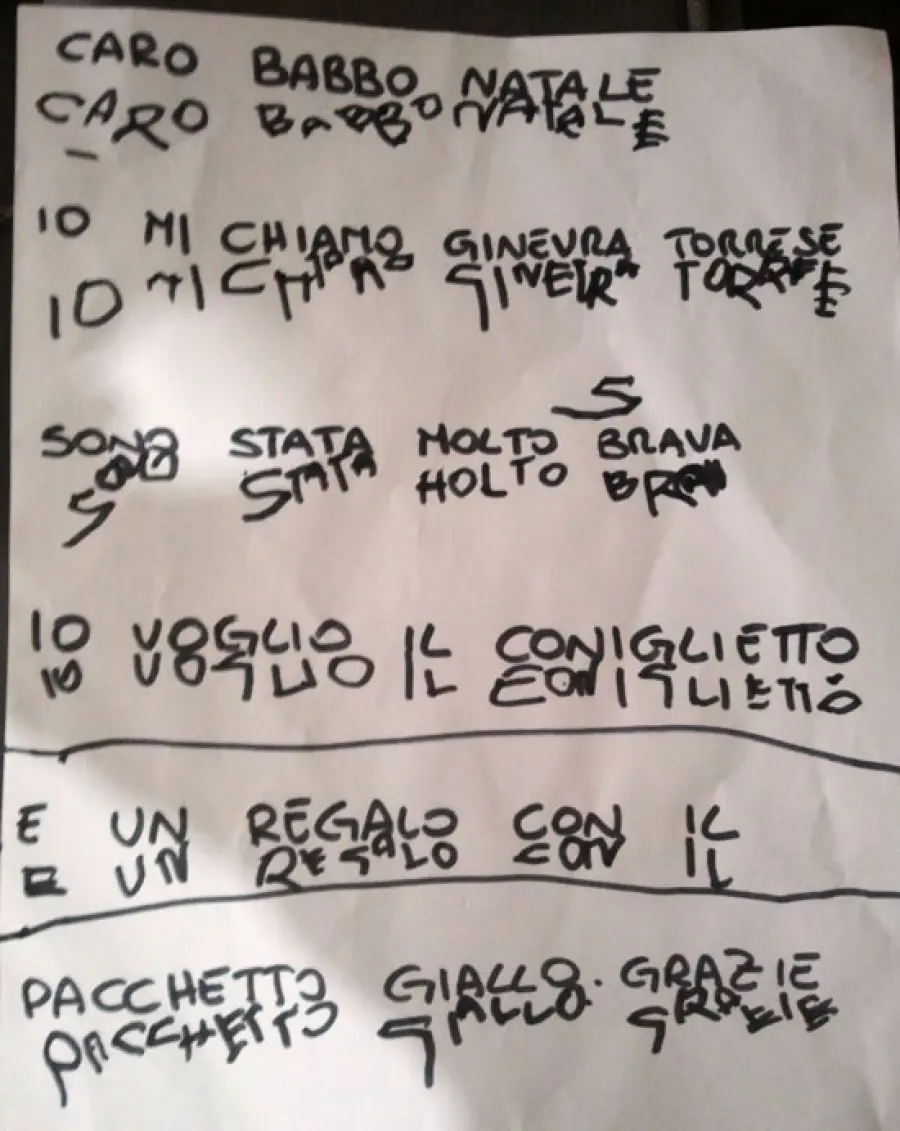 CARO BABBO NATALE
CARO BABBO NATALE
IO MI CHIAMO GINEVRA TORRESE
IO MI CHIAMO GINEVRA
S
SONO STATA MOLTO BRAVA
STATA HOLTO
S
IO VOGLIO IL CONIGLIETTO
IO VOGLIO IL CONIGLIETTO
E UN REGALO CON IL
E UN REGALO CON IL
PACCHETTO GIALLO. GRAZIE
PACCHETTO GIALLO